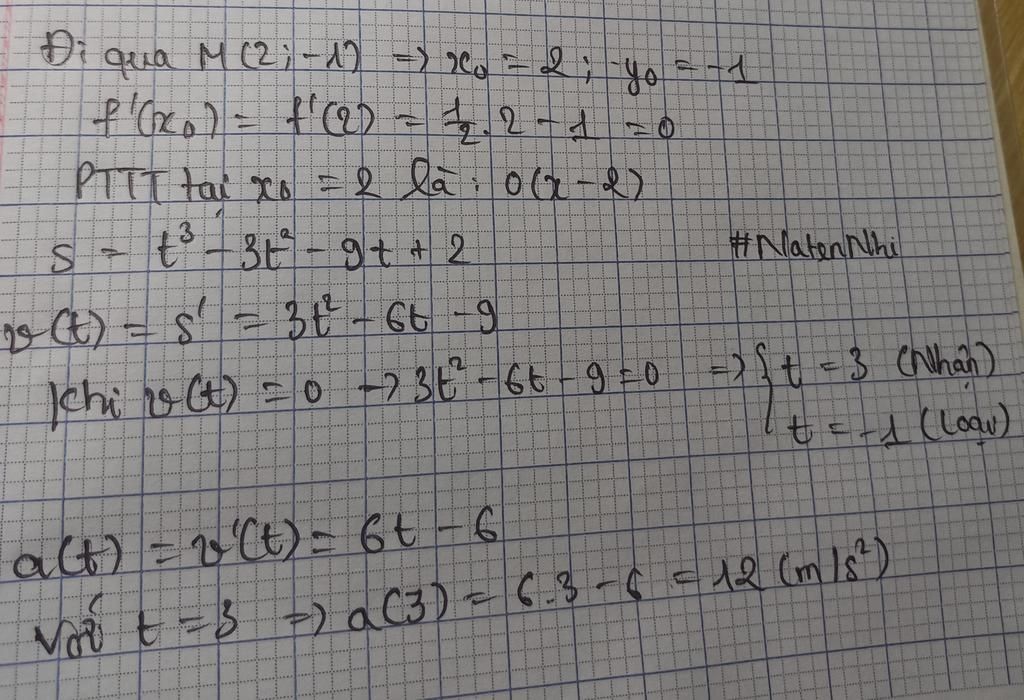 Đi qua M(2; -1) => x₀ = 2; y₀ = -1
f'(x₀) = f'(2) = 1/2 . 2 - 1 = 0
PTTT tại x₀ = 2 là: 0(x - 2)
s = t³ - 3t² - 9t + 2
#NatenNhi
v(t) = s' = 3t² - 6t - 9
Khi v(t) = 0 -> 3t² - 6t - 9 = 0 => { t = 3 (Nhận)
t = -1 (Loại)
a(t) = v'(t) = 6t - 6
Với t = 3 => a(3) = 6.3 - 6 = 12 (m/s²)